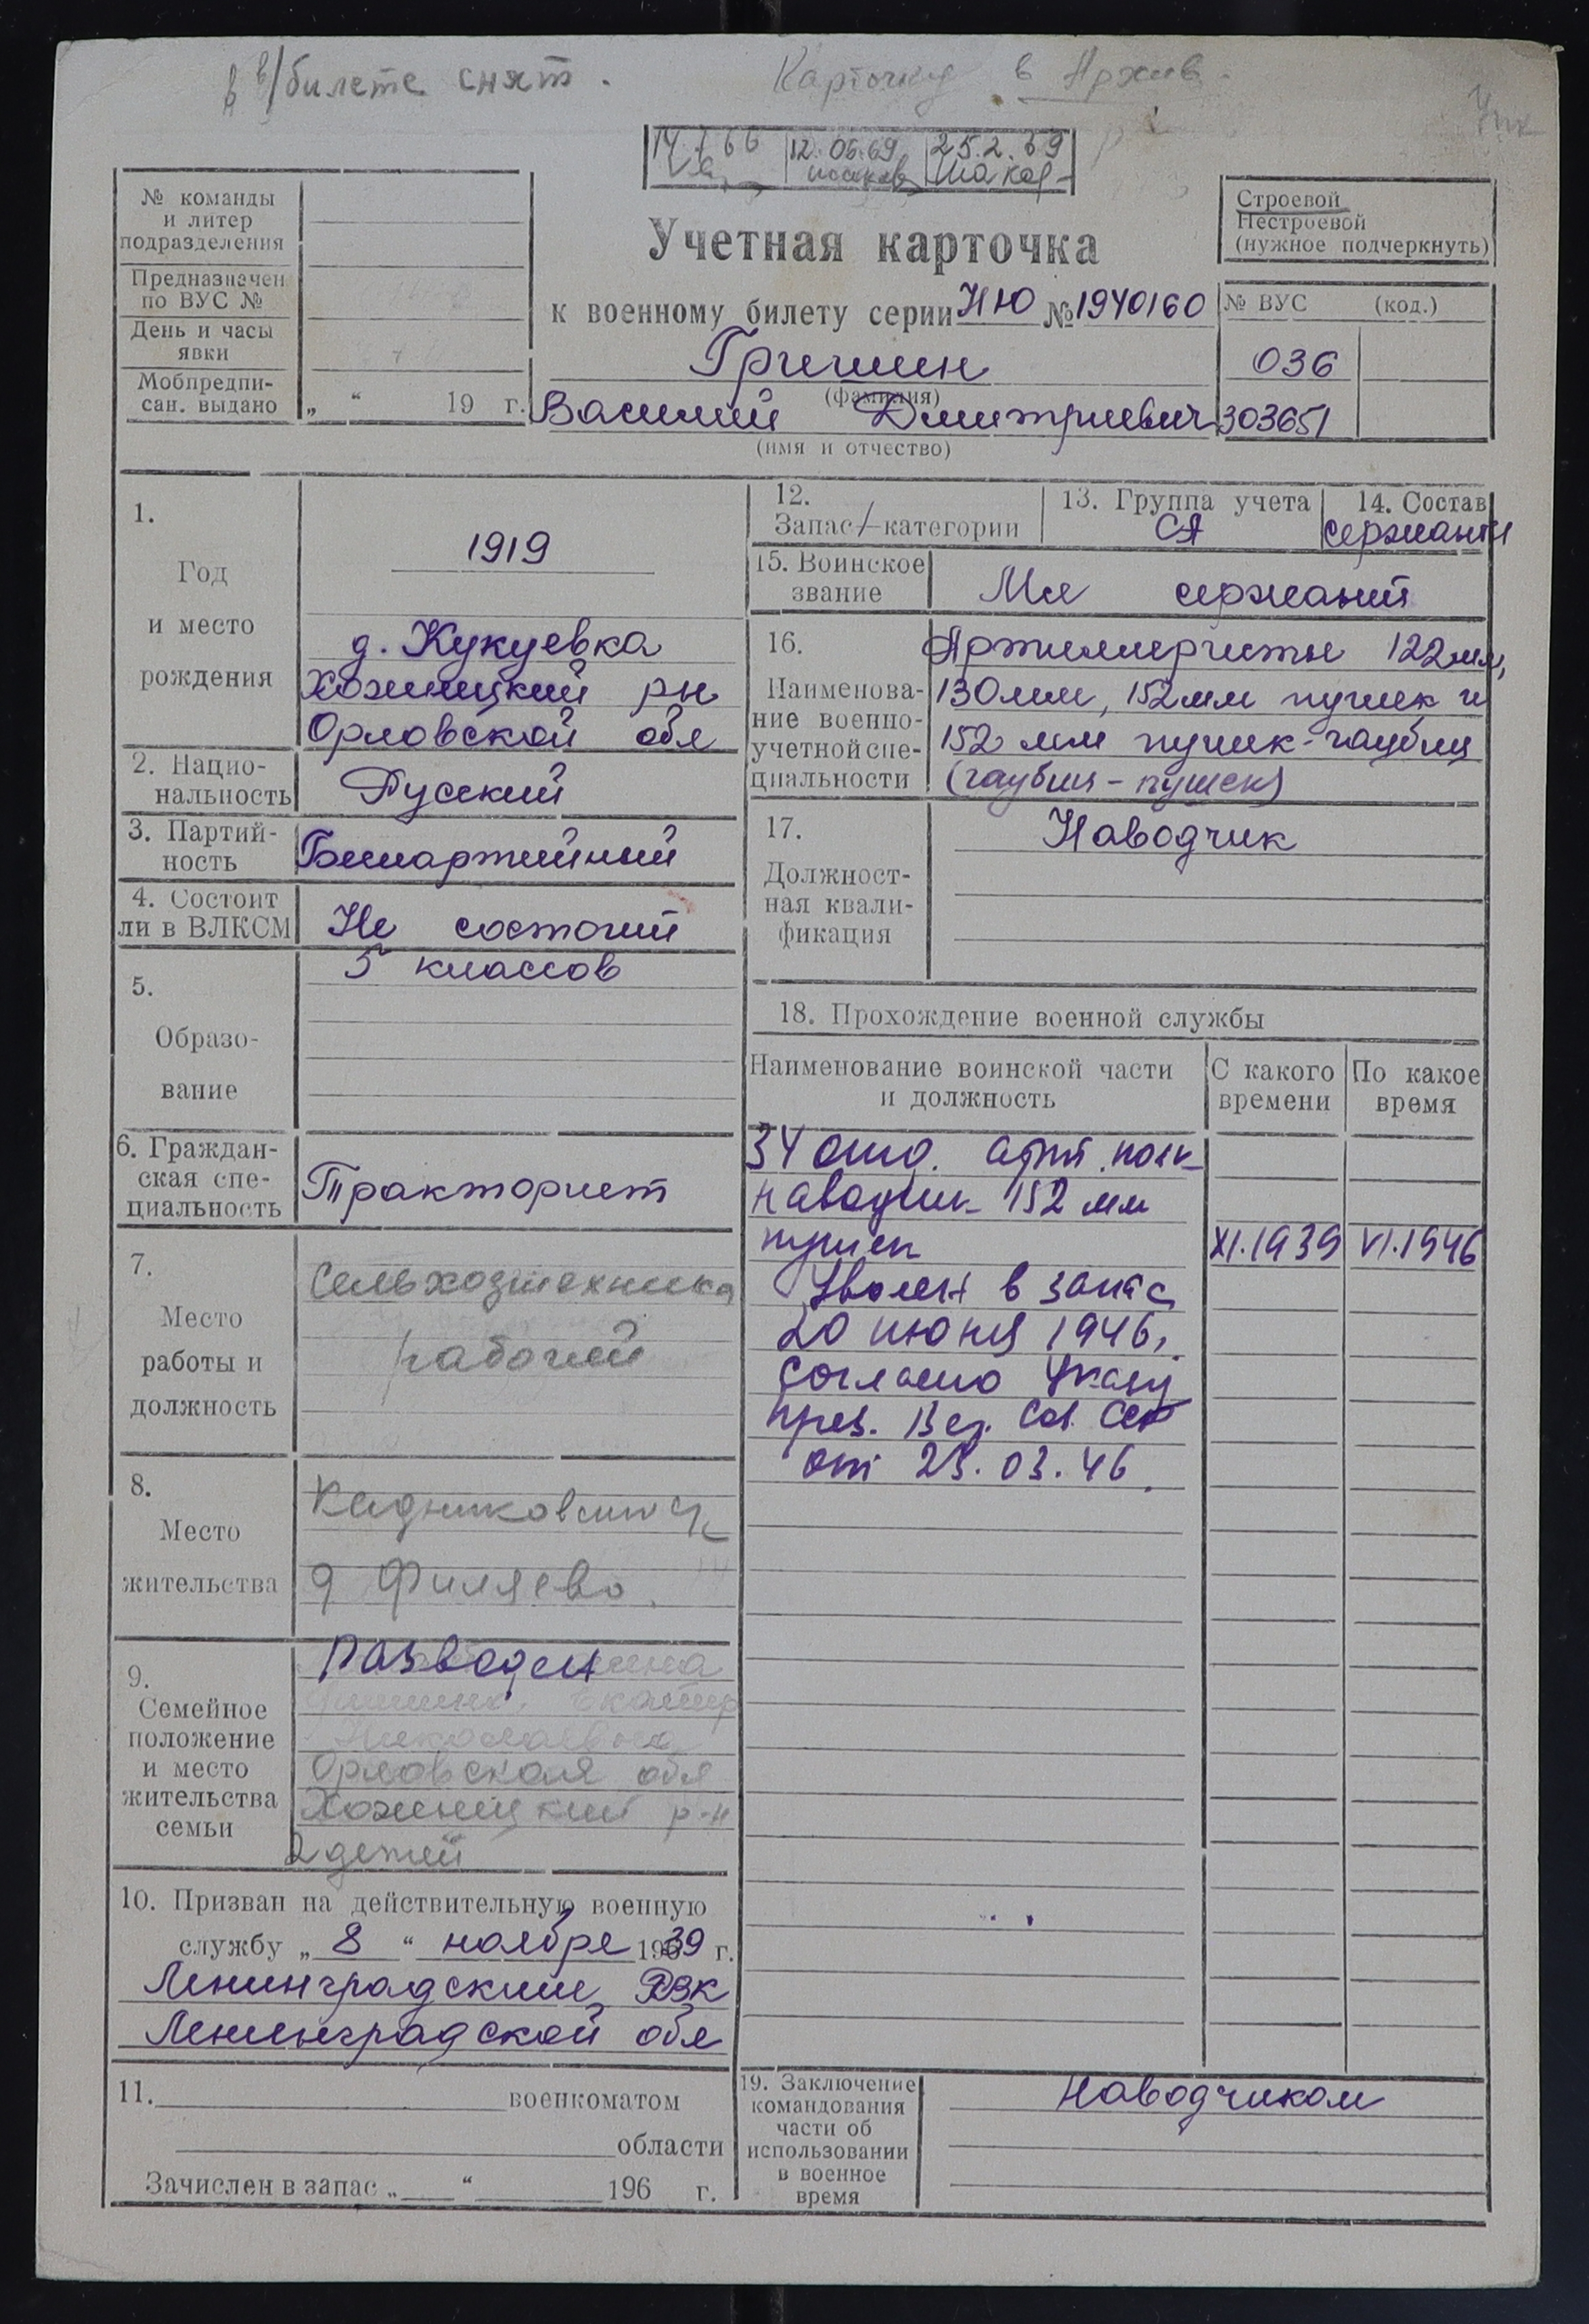 в/билете снят.
Карточку в Архив.
12.06.69
25.2.69
№ команды
и литер
подразделения
Предназначен
по ВУС №
День и часы
явки
Мобпредпи-
сан. выдано „ “ 19 г.
Учетная карточка
к военному билету серии НЮ № 1940160
Гришин
(фамилия)
Василий Дмитриевич
(имя и отчество)
Строевой
Нестроевой
(нужное подчеркнуть)
№ ВУС (код.)
036
303651
1.
Год
и место
рождения
1919
д. Кукуевка
Орловской обл
2. Нацио-
нальность Русский
3. Партий-
ность Беспартийный
4. Состоит
ли в ВЛКСМ Не состоит
5.
Образо-
вание
5 классов
6. Граждан-
ская спе-
циальность Тракторист
7.
Место
работы и
должность
Сельхозтехника
рабочий
8.
Место
жительства
д Филяево.
9.
Семейное
положение
и место
жительства
семьи
Разведен
Николаевна
Орловская обл
р-н
2 детей
10. Призван на действительную военную
службу „ 8 “ ноября 1939 г.
Ленинградским РВК
Ленинградской обл
11. военкоматом
области
Зачислен в запас „ “ 196 г.
12.
Запас категории
13. Группа учета
СА
14. Состав
сержанты
15. Воинское
звание Мл сержант
16.
Наименова-
ние военно-
учетной спе-
циальности
Артиллеристы 122мм,
130мм, 152мм пушек и
152 мм пушек-гаубиц
(гаубиц-пушек)
17.
Должност-
ная квали-
фикация
Наводчик
18. Прохождение военной службы
Наименование воинской части
и должность
С какого
времени
По какое
время
34 отд. арт. полк
наводчик 152 мм
пушек XI.1939 VI.1946
Уволен в запас
20 июня 1946г.
Согласно Указу
През. Вер. Сов. СССР
от 23.03.46.
19. Заключение
командования
части об
использовании
в военное
время
Наводчиком